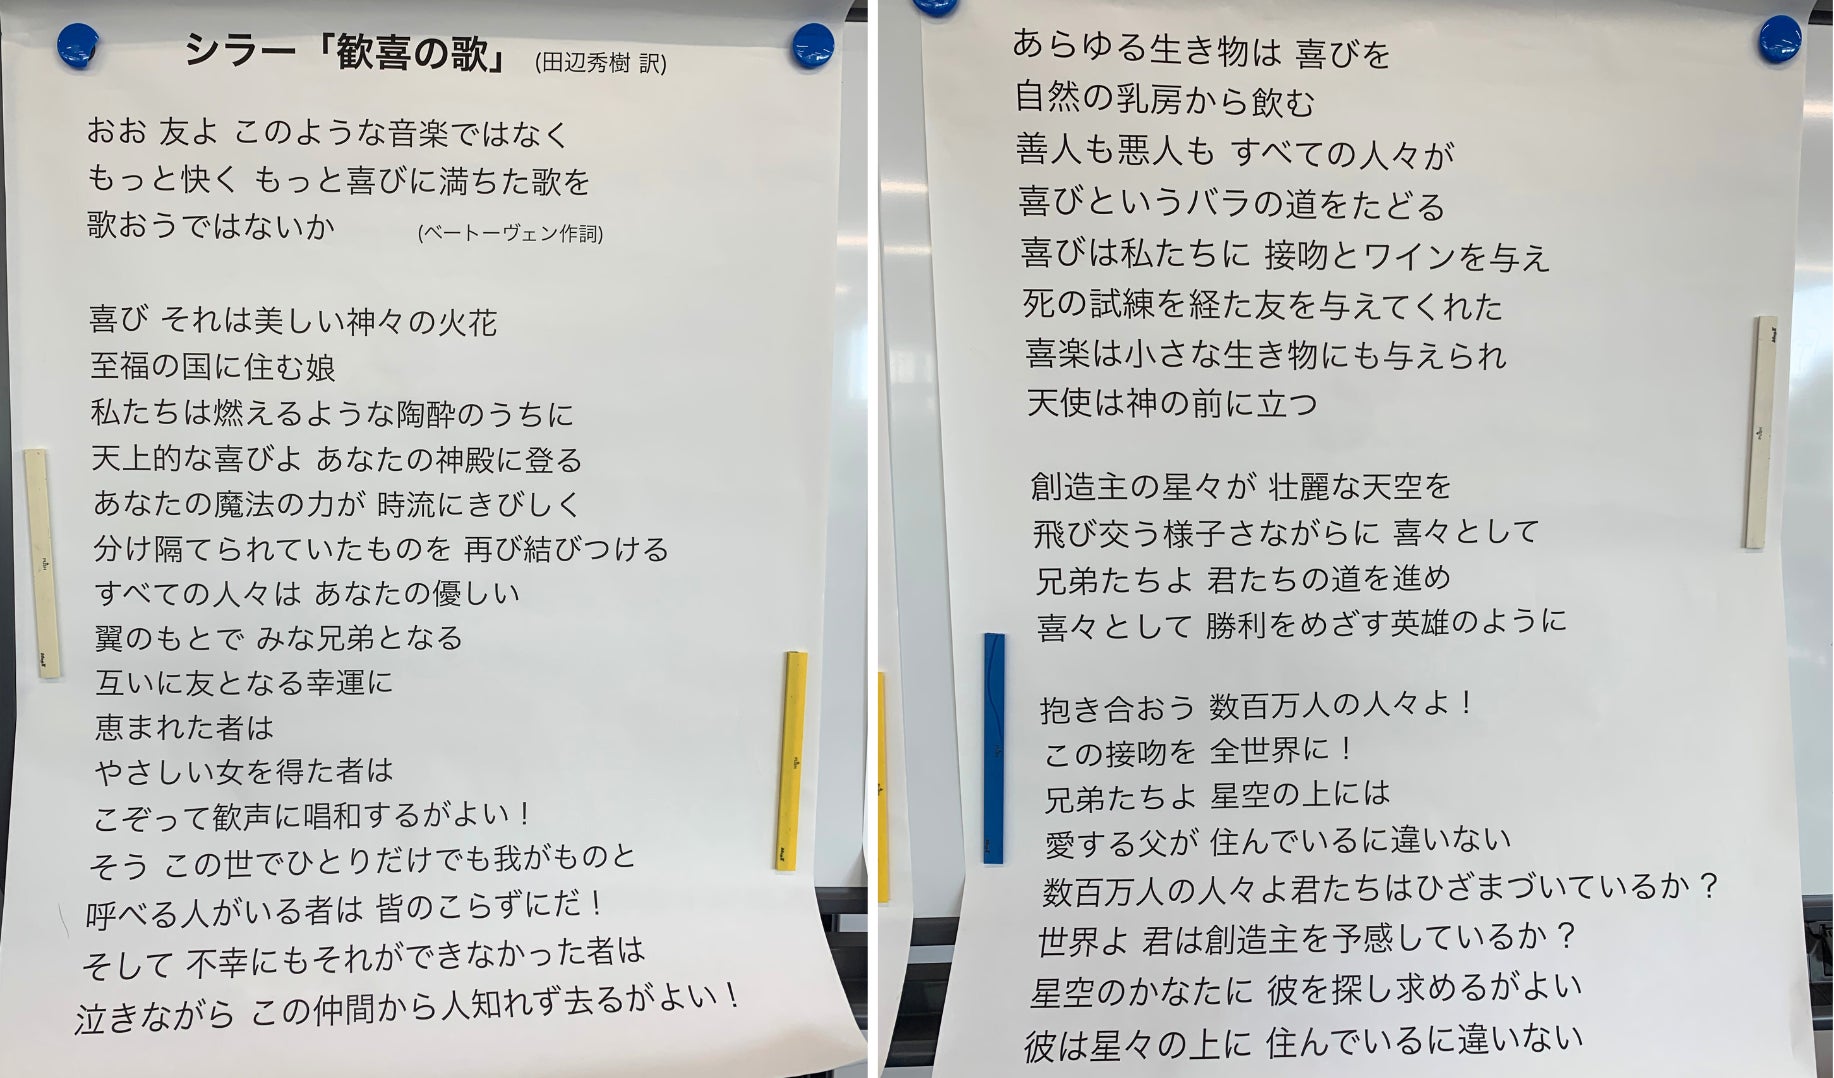 シラー「歓喜の歌」 (田辺秀樹 訳)
おお 友よ このような音楽ではなく
もっと快く もっと喜びに満ちた歌を
歌おうではないか (ベートーヴェン作詞)
喜び それは美しい神々の火花
至福の国に住む娘
私たちは燃えるような陶酔のうちに
天上的な喜びよ あなたの神殿に登る
あなたの魔法の力が 時流にきびしく
分け隔てられていたものを 再び結びつける
すべての人々は あなたの優しい
翼のもとで みな兄弟となる
互いに友となる幸運に
恵まれた者は
やさしい女を得た者は
こぞって歓声に唱和するがよい！
そう この世でひとりだけでも我がものと
呼べる人がいる者は 皆のこらずにだ！
そして 不幸にもそれができなかった者は
泣きながら この仲間から人知れず去るがよい！
あらゆる生き物は 喜びを
自然の乳房から飲む
善人も悪人も すべての人々が
喜びというバラの道をたどる
喜びは私たちに 接吻とワインを与え
死の試練を経た友を与えてくれた
喜楽は小さな生き物にも与えられ
天使は神の前に立つ
創造主の星々が 壮麗な天空を
飛び交う様子さながらに 喜々として
兄弟たちよ 君たちの道を進め
喜々として 勝利をめざす英雄のように
抱き合おう 数百万人の人々よ！
この接吻を 全世界に！
兄弟たちよ 星空の上には
愛する父が 住んでいるに違いない
数百万人の人々よ君たちはひざまづいているか？
世界よ 君は創造主を予感しているか？
星空のかなたに 彼を探し求めるがよい
彼は星々の上に 住んでいるに違いない